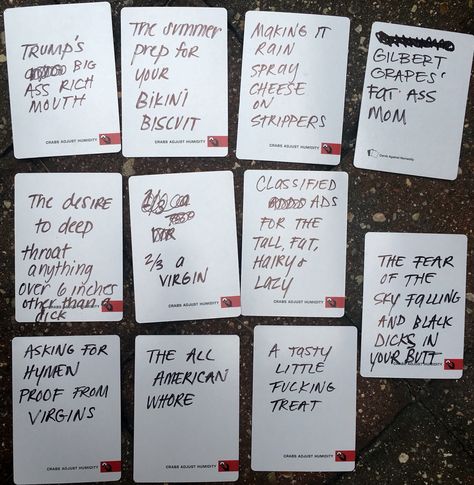 TRUMP'S
BIG
ASS RICH
MOUTH
CRABS ADJUST HUMIDITY
The summer
prep for
your
Bikini
Biscuit
CRABS ADJUST HUMIDITY
MAKING IT
RAIN
SPRAY
CHEESE
ON
STRIPPERS
CRABS ADJUST HUMIDITY
GILBERT
GRAPES'
FAT ASS
MOM
Cards Against Humanity
The desire
to deep
throat
anything
over 6 inches
other than a
dick
CRABS ADJUST HUMIDITY
2/3
2/3 a
VIRGIN
CRABS ADJUST HUMIDITY
CLASSIFIED
ADS
FOR THE
TALL, FAT,
HAIRY &
LAZY
CRABS ADJUST HUMIDITY
THE FEAR OF
THE SKY FALLING
AND BLACK
DICKS IN
YOUR BUTT
CRABS ADJUST HUMIDITY
ASKING FOR
HYMEN
PROOF FROM
VIRGINS
CRABS ADJUST HUMIDITY
THE ALL
AMERICAN
WHORE
CRABS ADJUST HUMIDITY
A TASTY
LITTLE
FUCKING
TREAT
CRABS ADJUST HUMIDITY